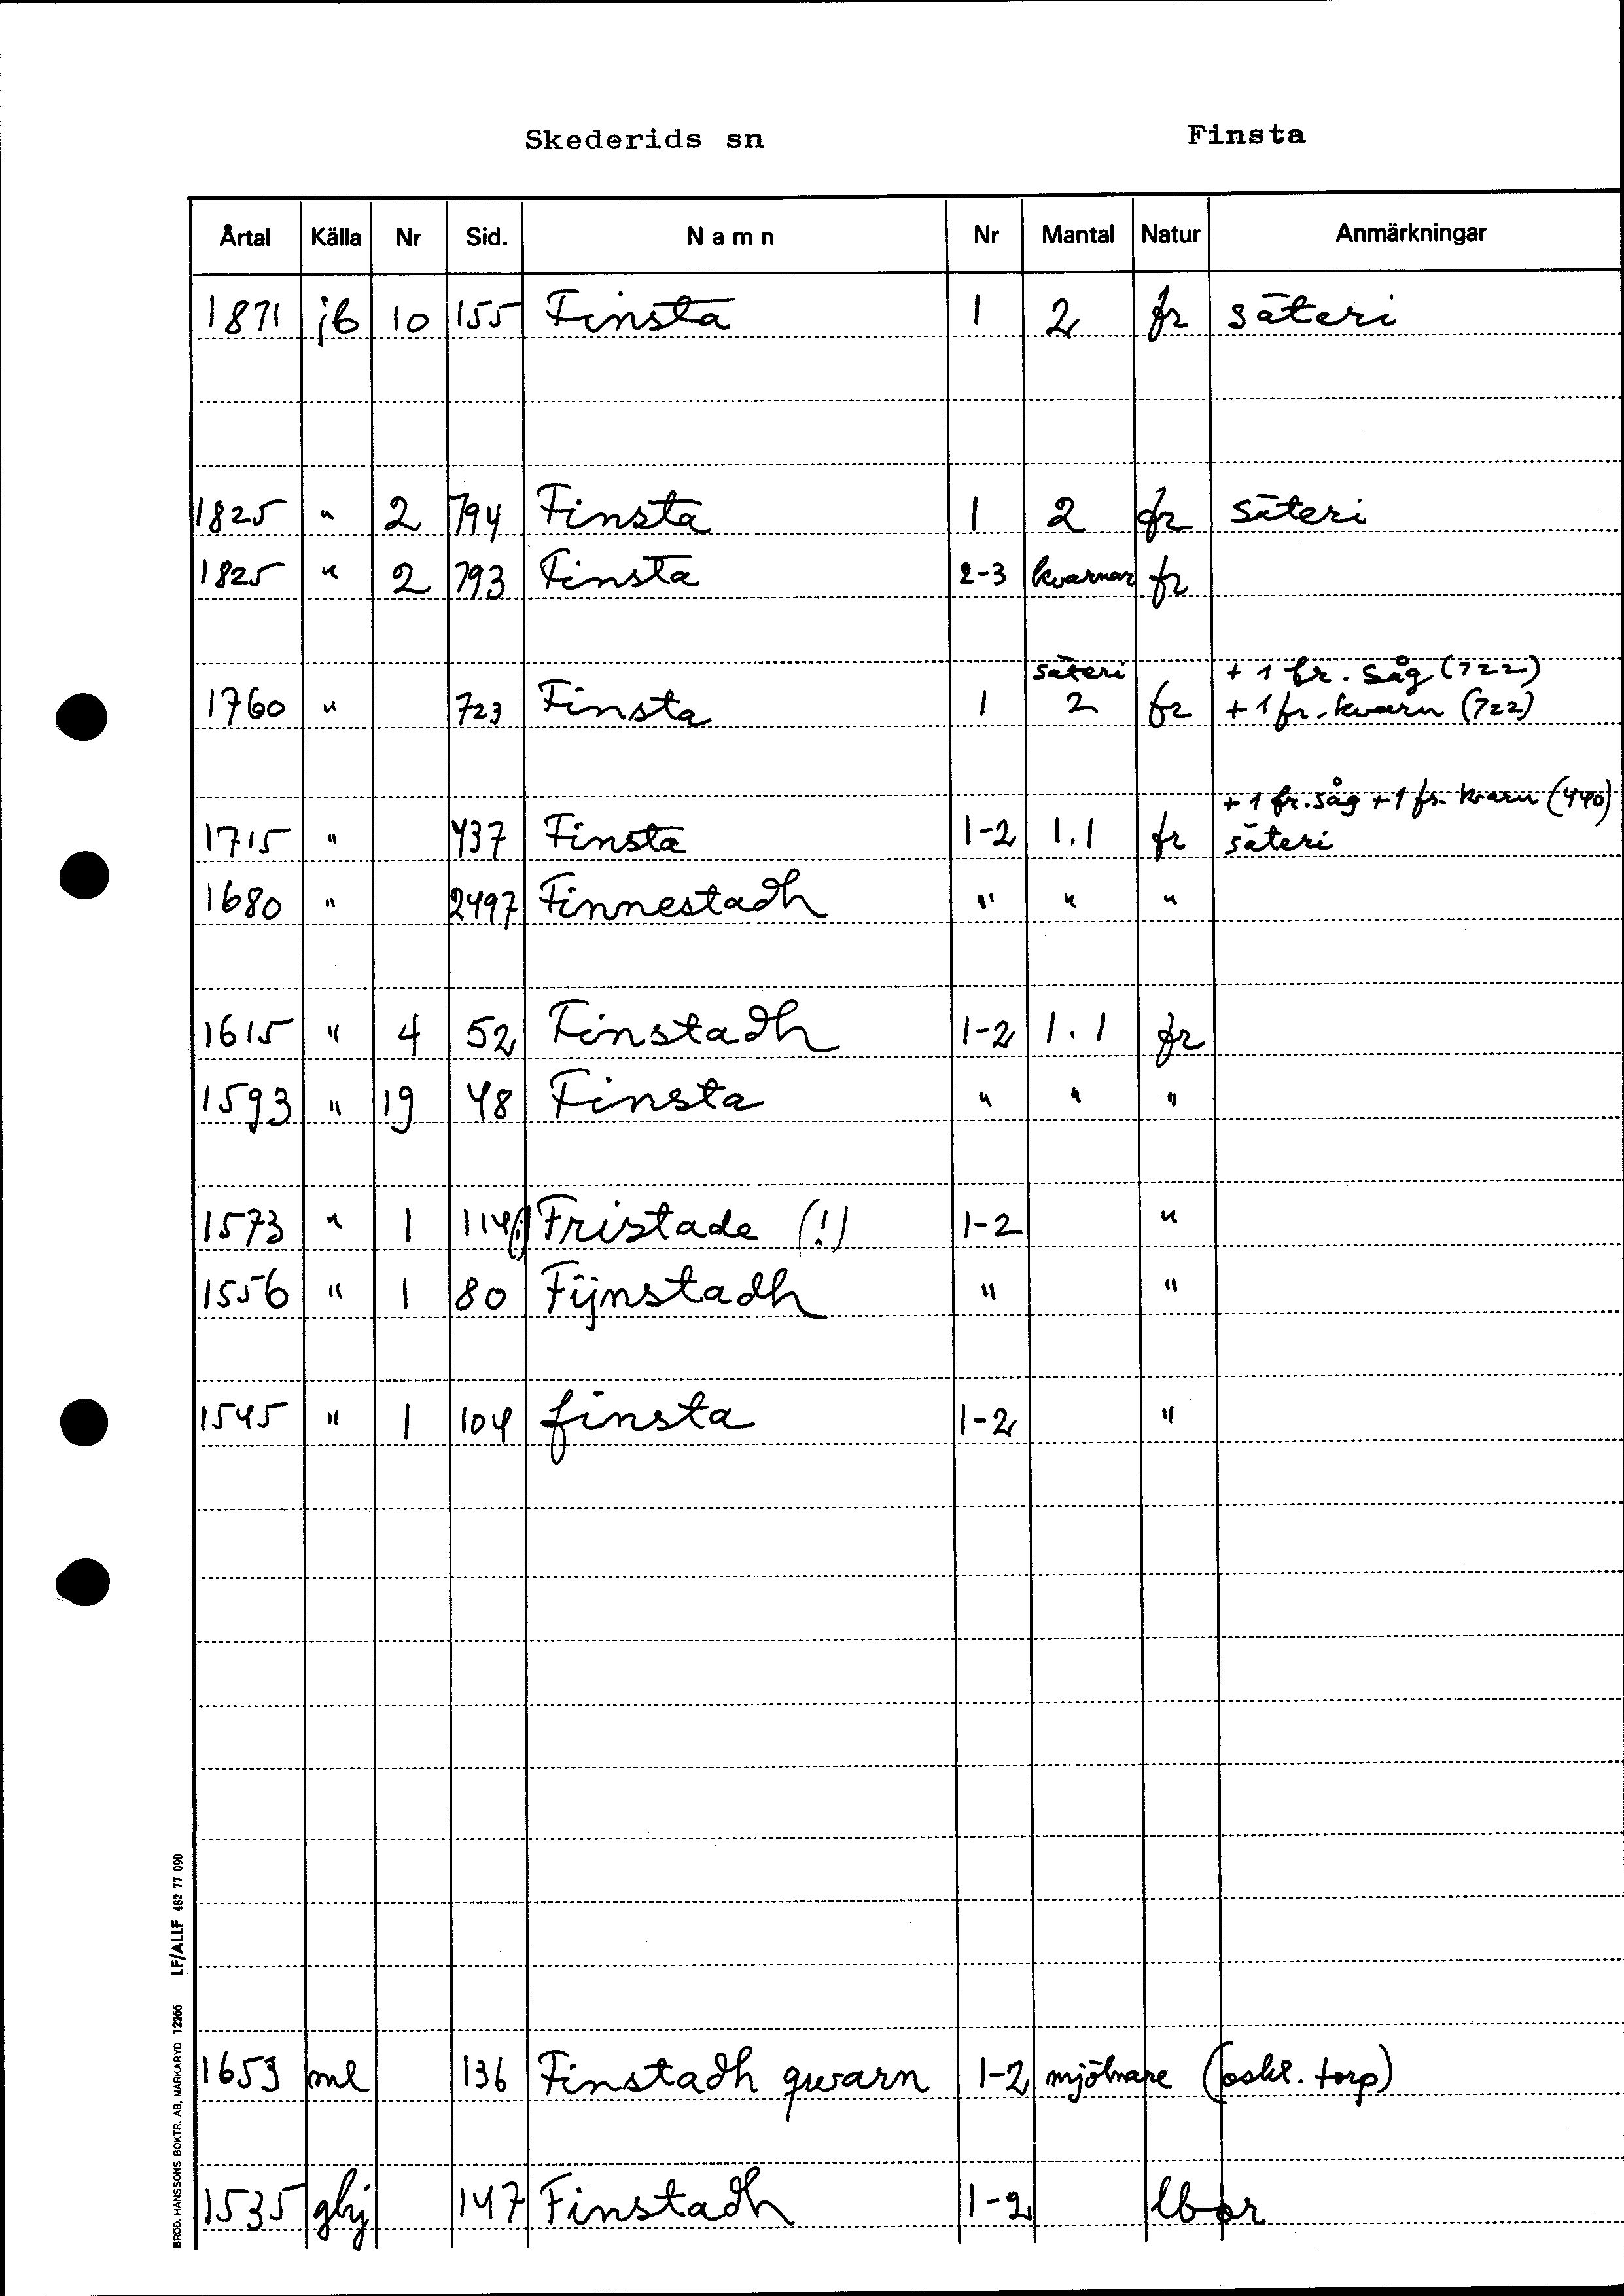 Skederids sn Finsta
Årtal Källa Nr Sid. Namn Nr Mantal Natur Anmärkningar
1871 jb 10 155 Finsta 1 2 fr säteri
1825 " 2 794 Finsta 1 2 fr säteri
1825 " 2 793 Finsta 2-3 kvarnar fr
säteri + 1 fr. såg (722)
1760 " 723 Finsta 1 2 fr + 1 fr. kvarn (722)
+ 1 fr. såg + 1 fr. kvarn (440)
1715 " 437 Finsta 1-2 1.1 fr säteri
1680 " 2497 Finnestadh " " "
1615 " 4 52 Finstadh 1-2 1.1 fr
1593 " 19 48 Finsta " " "
1573 " 1 114 Fristade (!) 1-2 "
1556 " 1 80 Fijnstadh " "
1545 " 1 104 finsta 1-2 "
1653 ml 136 Finstadh qwarn 1-2 mjölnare (oskl. torp)
1535 gbj 147 Finstadh 1-2 lb or
BRÖD. HANSSONS BOKTR. AB, MARKARYD 12266 LF/ALLF 482 77 090